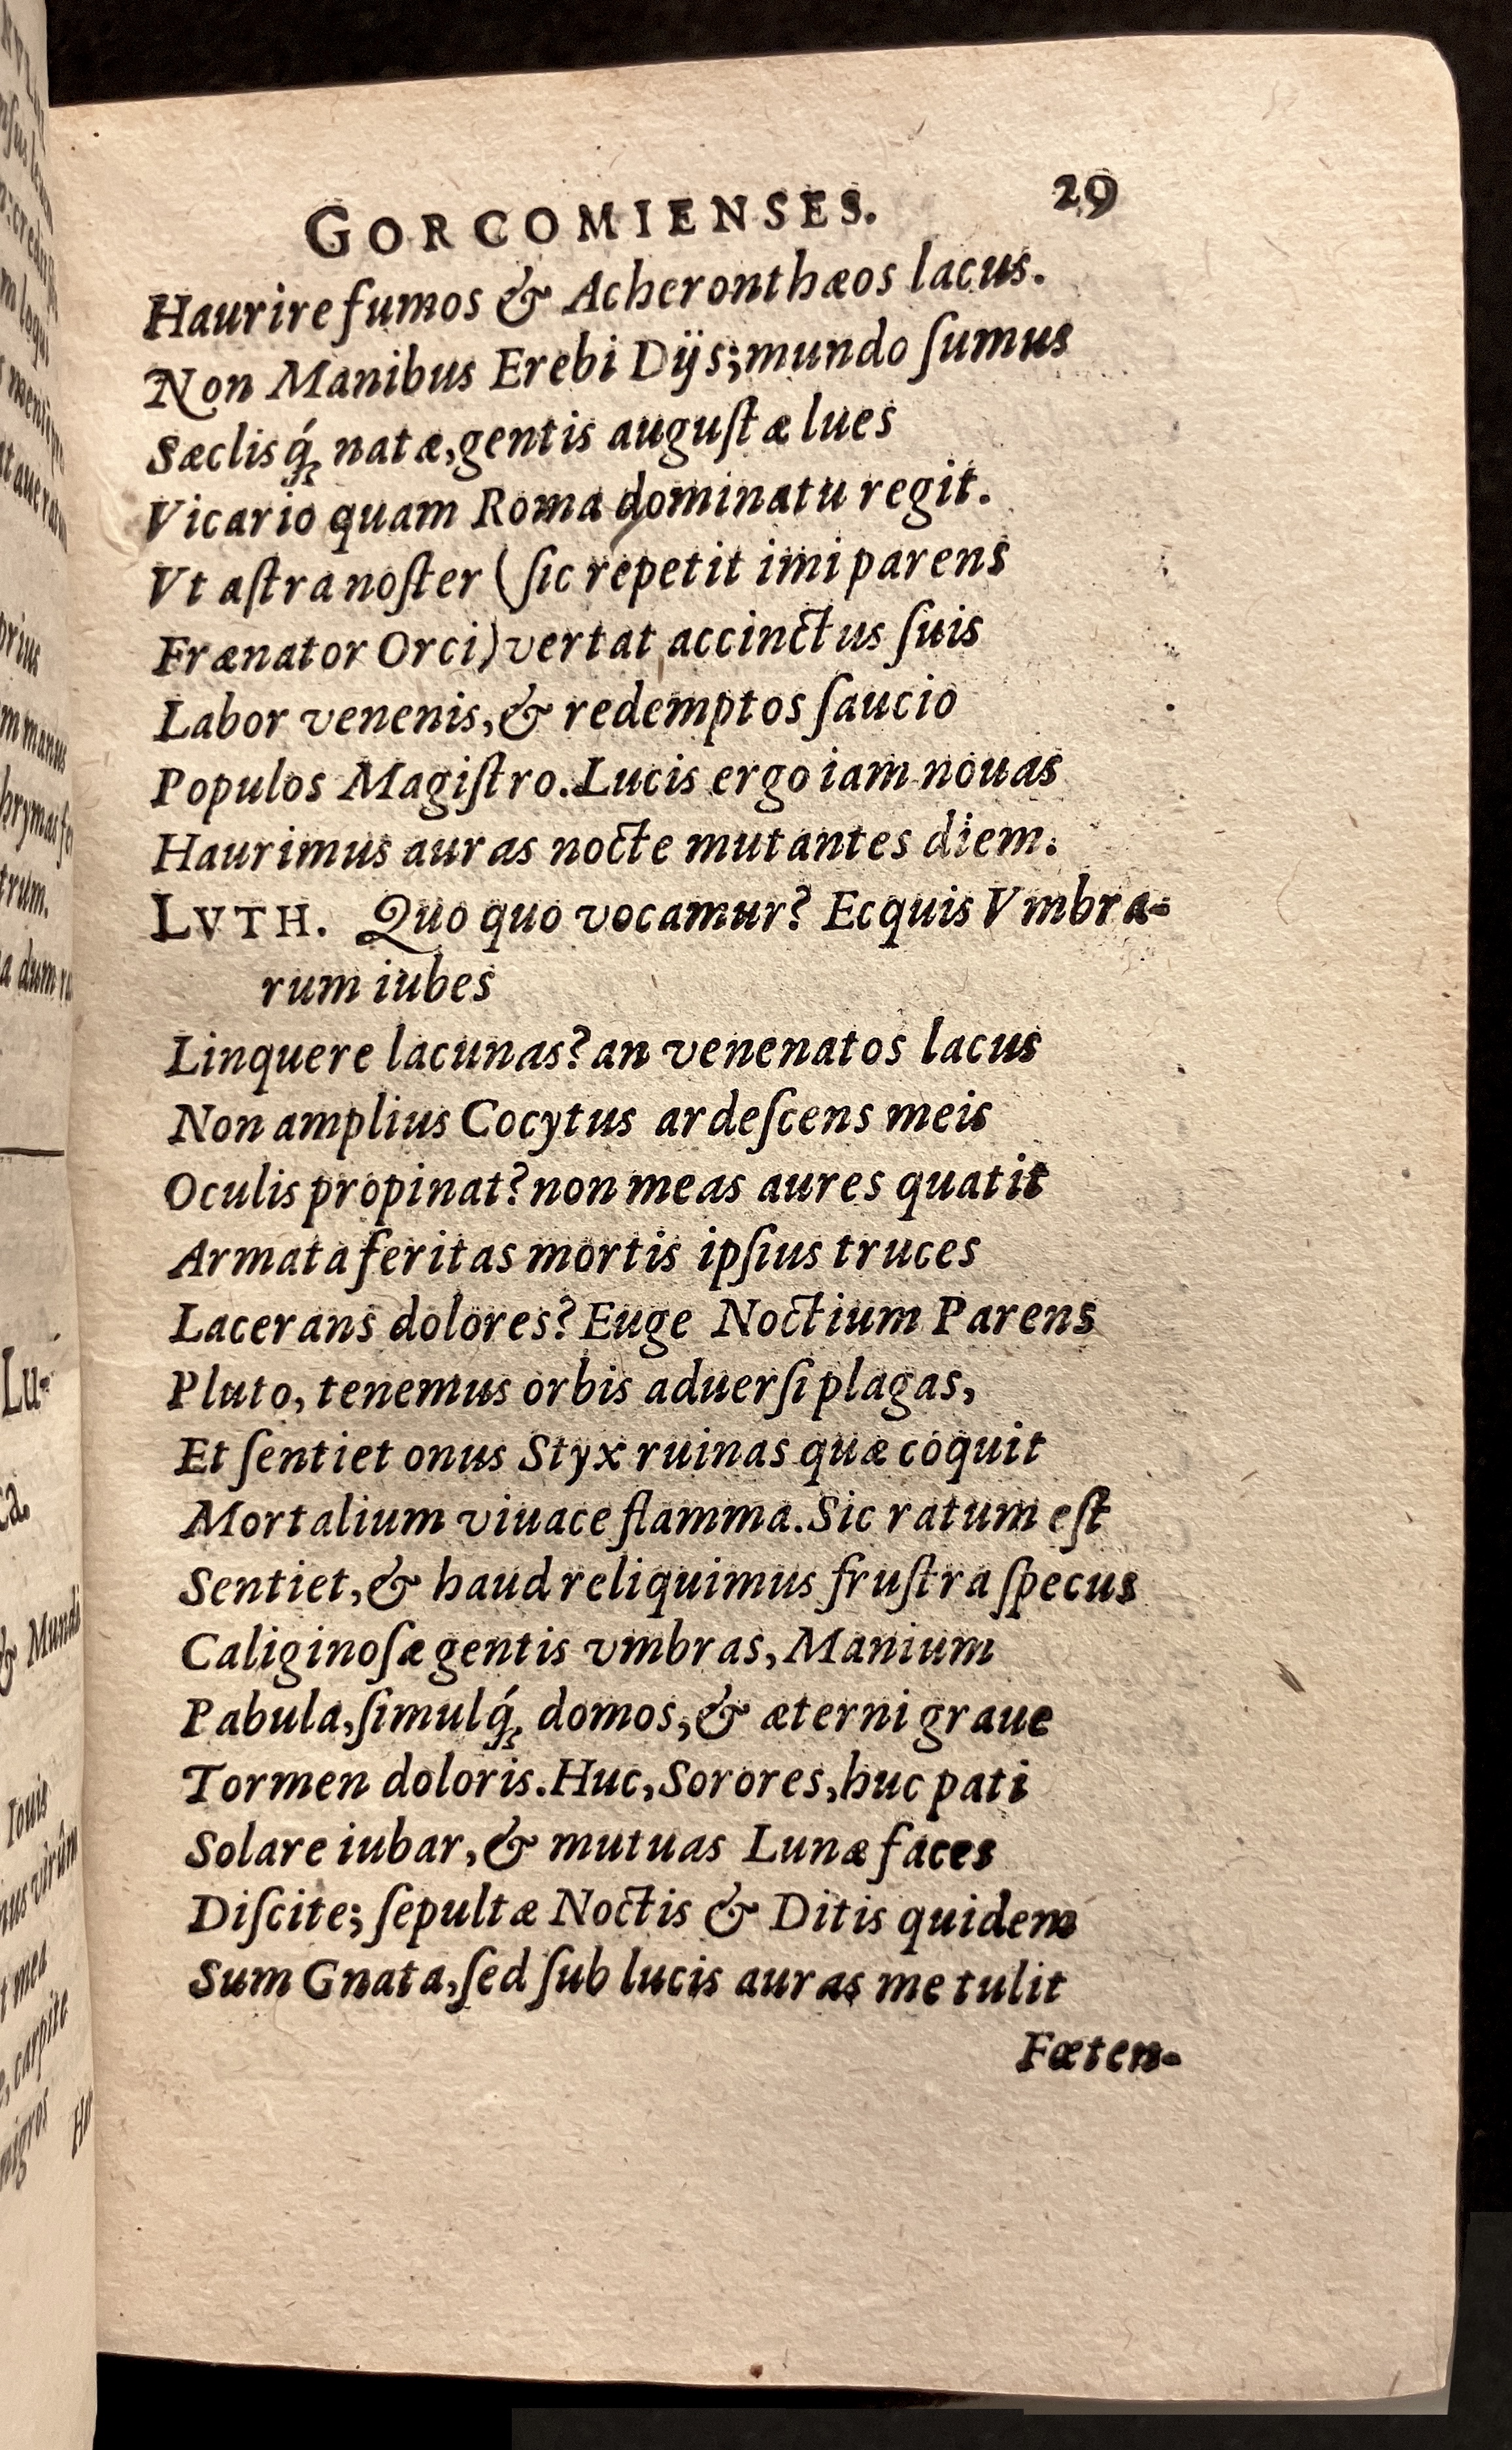 GORCOMIENSES. 29
Haurire fumos & Acheronthæos lacus.
Non Manibus Erebi Dijs; mundo ſumus
Sæclisq́ꝫ natæ, gentis auguſtæ lues
Vicario quam Roma dominatu regit.
Vt aſtra noſter (ſic repetit imi parens
Frænator Orci) vertat accinctus ſuis
Labor venenis, & redemptos ſaucio
Populos Magiſtro. Lucis ergo iam nouas
Haurimus auras nocte mutantes diem.
LVTH. Quo quo vocamur? Ecquis Vmbra-
rum iubes
Linquere lacunas? an venenatos lacus
Non amplius Cocytus ardeſcens meis
Oculis propinat? non meas aures quatit
Armata feritas mortis ipſius truces
Lacerans dolores? Euge Noctium Parens
Pluto, tenemus orbis aduerſi plagas,
Et ſentiet onus Styx ruinas quæ coquit
Mortalium viuace flamma. Sic ratum eſt
Sentiet, & haud reliquimus fruſtra ſpecus
Caliginoſæ gentis vmbras, Manium
Pabula, ſimulq́ꝫ domos, & æterni graue
Tormen doloris. Huc, Sorores, huc pati
Solare iubar, & mutuas Lunæ faces
Diſcite; ſepultæ Noctis & Ditis quidem
Sum Gnata, ſed ſub lucis auras me tulit
Fœten-